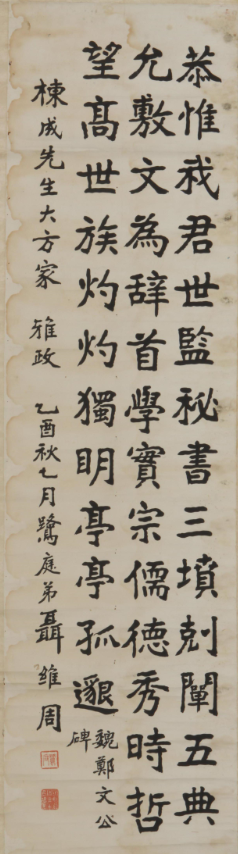 恭惟我君世監秘書三墳剋闡五典
允敷文為辭首學實宗儒德秀時哲
望高世族灼灼獨明亭亭孤邈
魏鄭文公
碑
棟成先生大方家 雅政 乙酉秋七月鷺庭弟聶維周